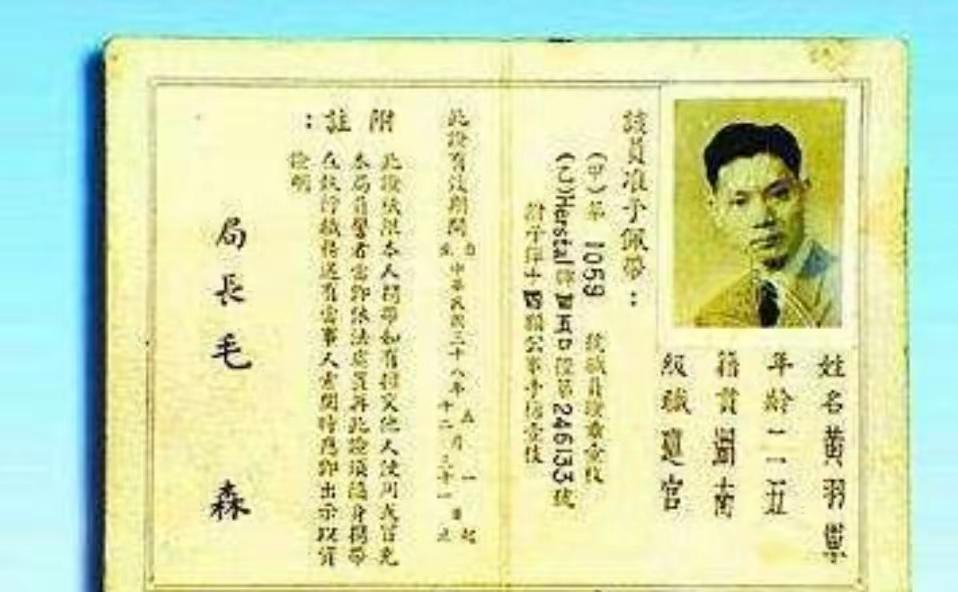 姓名黃羽
年齡二五
籍貫湖南
級職
該員准予佩帶：
(甲)第1059號職員證章壹枚
(乙)Herstal牌 徑第246133號
附子彈 顆公事手槍壹枝
此證有效期間自中華民國三十八年五月一日起
至 十二 三十一 止
附註：
此證祇限本人攜帶如有損交他人使用或冒充
本局員警者當即依法處置再此證須隨身攜帶
在執行職務遇有當事人索閱時應即出示以資
證明
局長毛森